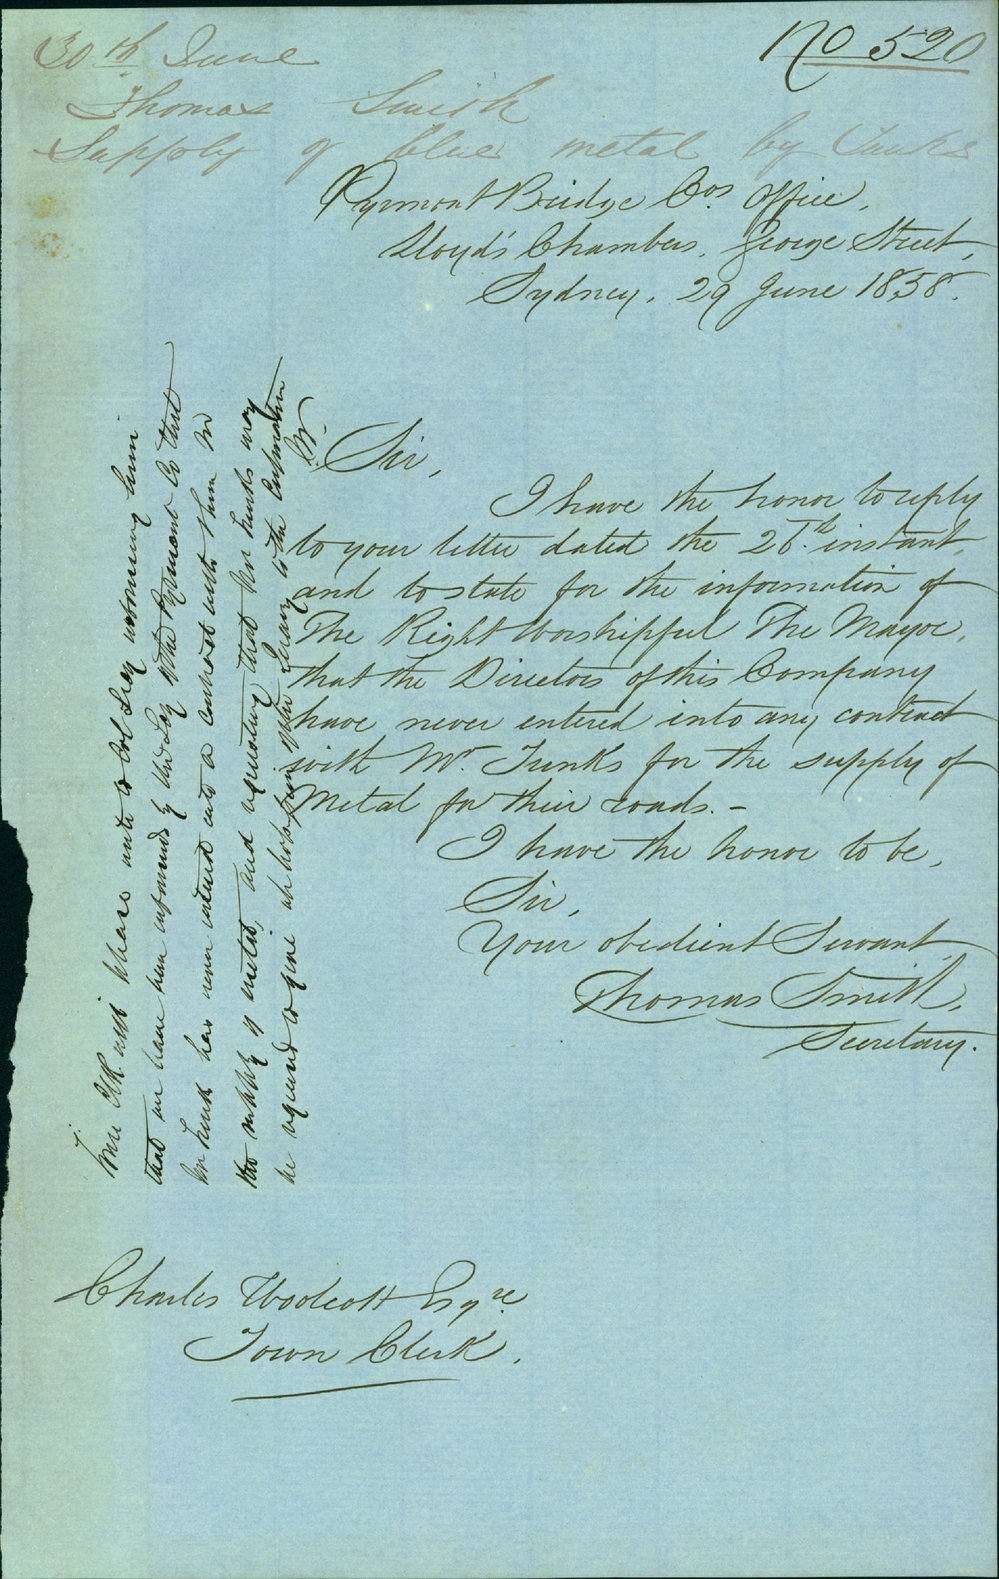 No 520
30th June
Thomas Smith
Supply of blue metal by Tunks
Pyrmont Bridge Cos. Office,
Lloyd's Chambers, George Street,
Sydney, 29 June 1858.
Sir,
I have the honor to reply
to your letter dated the 26th. instant,
and to state for the information of
The Right Worshipful The Mayor,
that the Directors of this Company
have never entered into any contract
with Mr. Tunks for the supply of
Metal for their roads. -
I have the honor to be,
Sir,
Your obedient Servant
Thomas Smith,
Secretary.
Charles Woolcott Esqre.
Town Clerk.
Town Clk will please write to informing him
that we have been informed by the Secy of the Pyrmont Co that
has never entered into a contract with them for
the supply of metal, and requesting that Mr Tunks may
be required to give an explanation to the Corporation